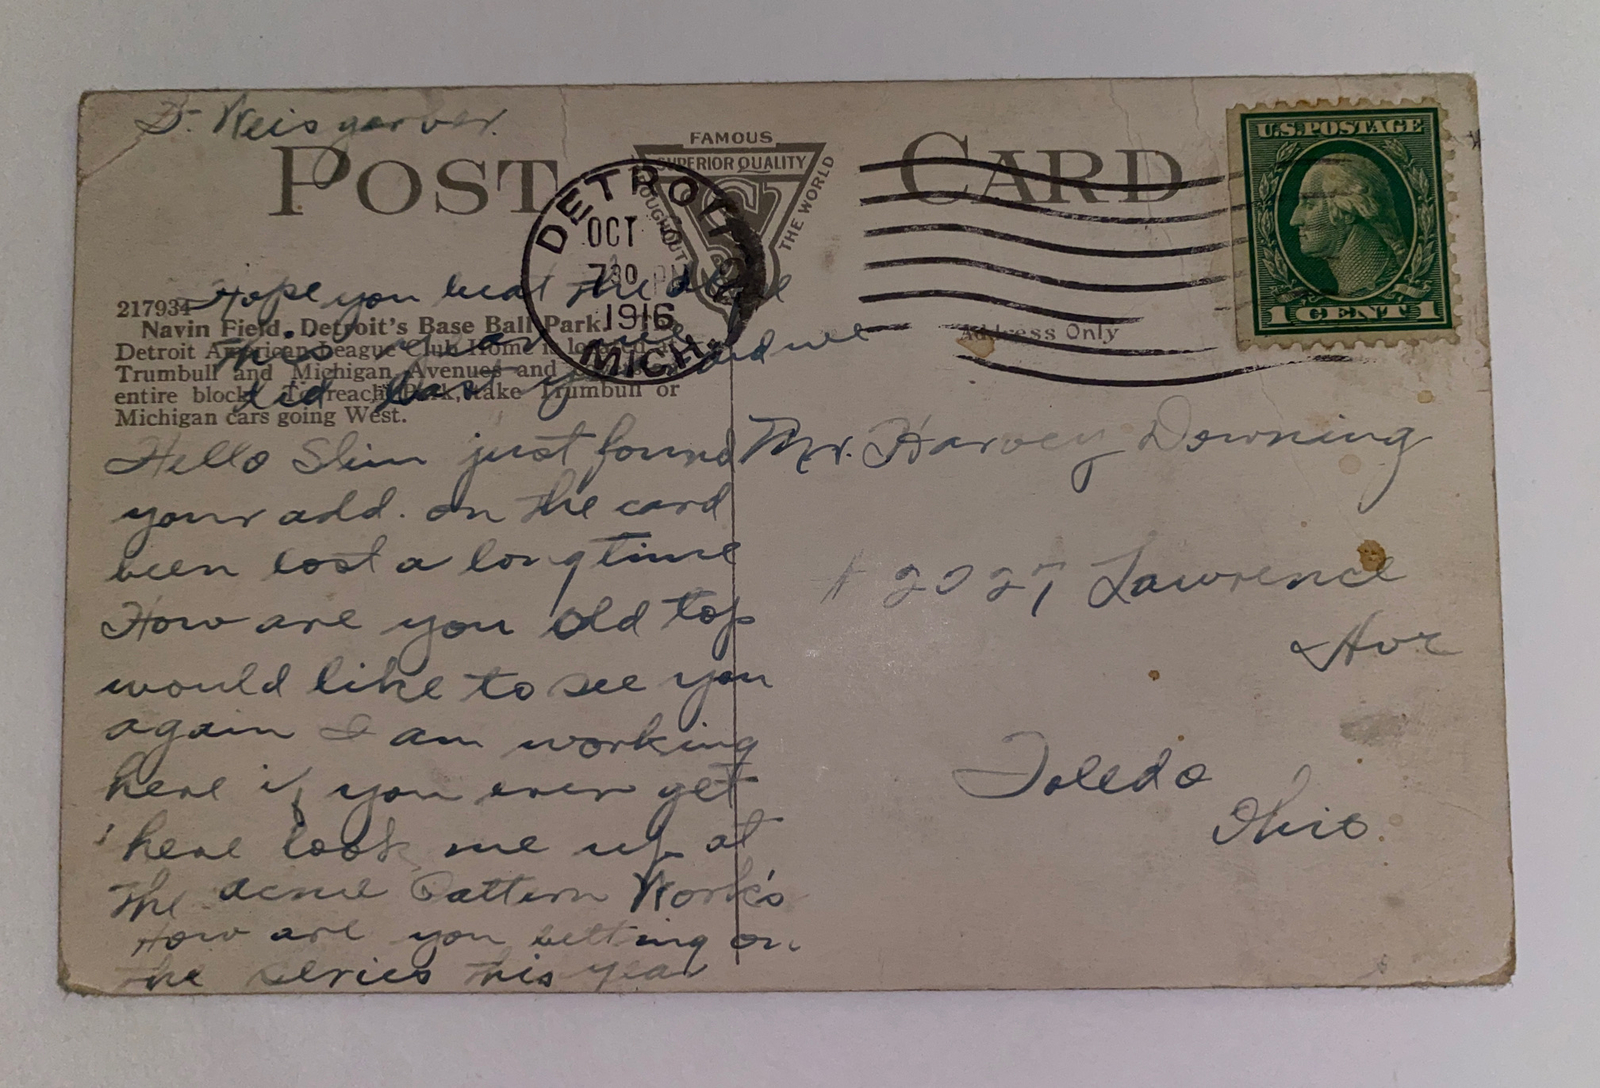 D. Weisgarver.
POST CARD
FAMOUS
SUPERIOR QUALITY
THROUGHOUT
THE WORLD
DETROIT
OCT
730 PM
1916
MICH.
U.S. POSTAGE
1 CENT 1
Address Only
217934
Navin Field, Detroit's Base Ball Park.
Detroit American League Club Home is
Trumbull and Michigan Avenues and
entire block. To reach Park, take Trumbull or
Michigan cars going West.
Hello Slim just found
your add. on the card
been lost a long time
How are you old top
would like to see you
again I am working
here if you ever get
here look me up at
the acme Pattern Work's
How are you betting on
the series this year
Hope you beat the
this year
did last year
Mr. Harvey Downing
# 2027 Lawrence
Ave
Toledo
Ohio.